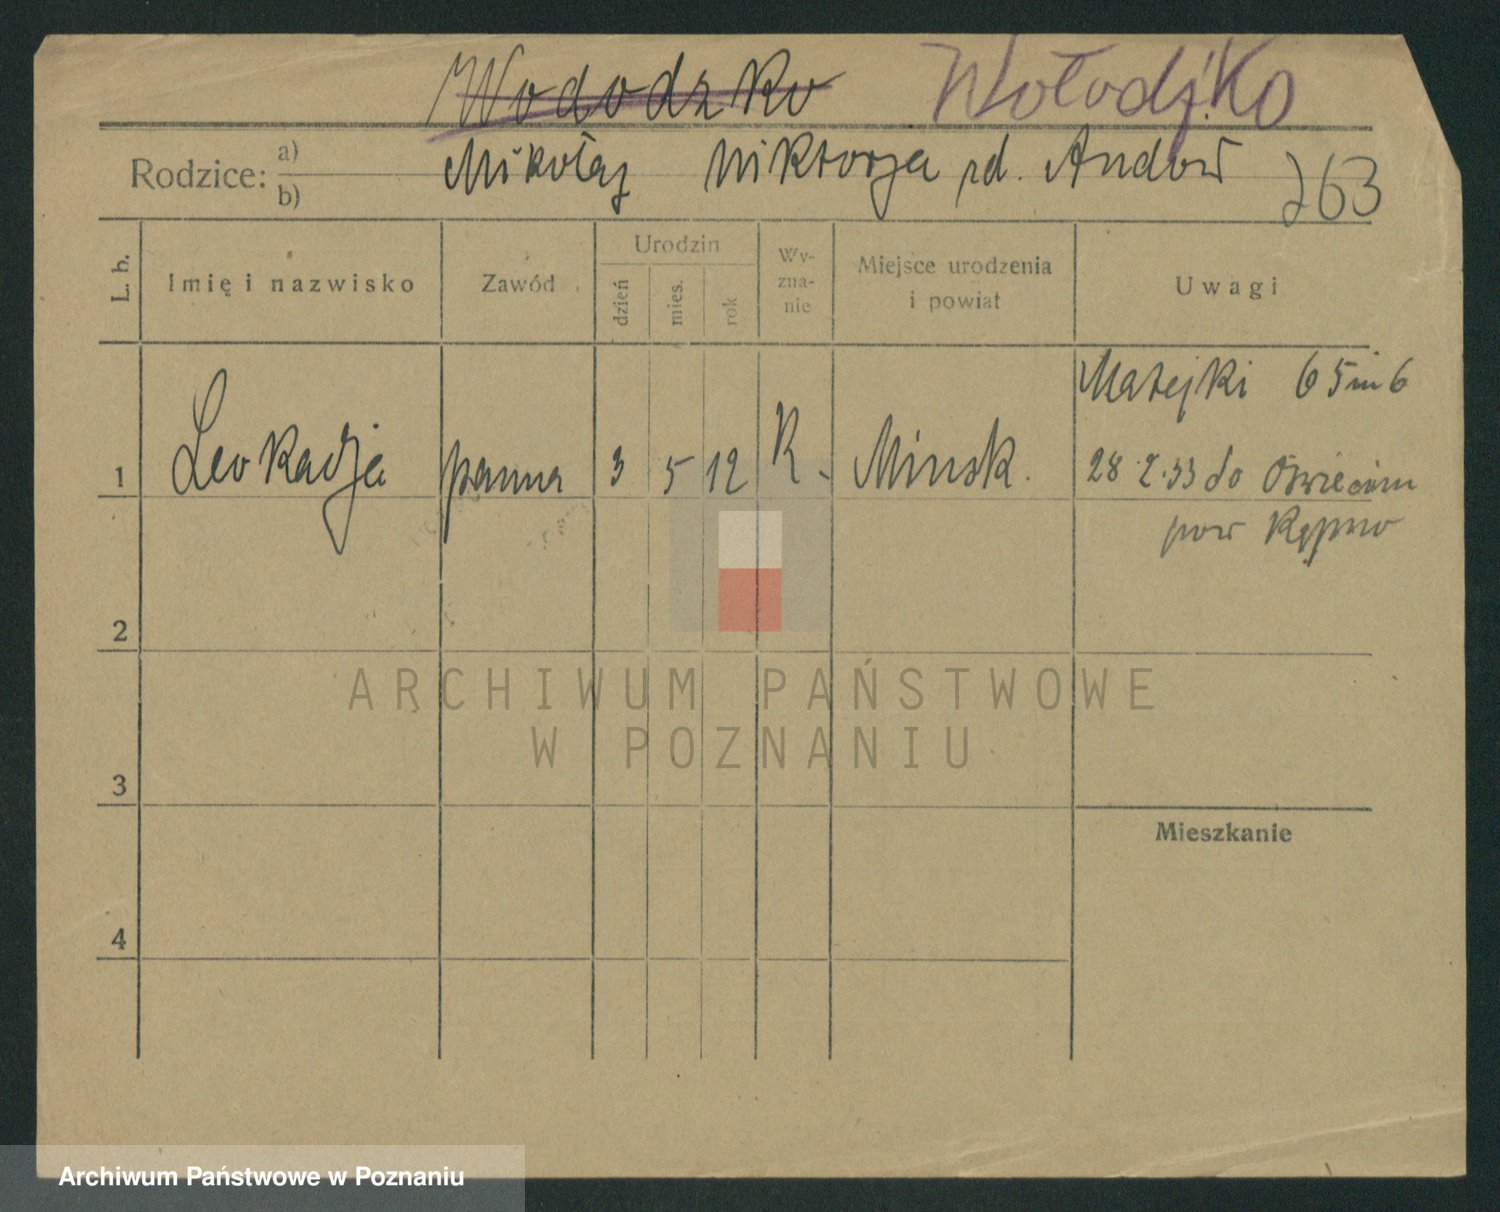 Wododzko Wołodźko
Rodzice: a) b) Mikołaj Wiktorja rd. Andow 263
L. b. Imię i nazwisko Zawód Urodzin dzień mies. rok Wyznanie Miejsce urodzenia i powiat Uwagi
Matejki 65 m 6
1 Leokadja panna 3 5 12 R. Minsk. 28 2.33 do
pow Kępno
2
ARCHIWUM PAŃSTWOWE
W POZNANIU
3
Mieszkanie
4
Archiwum Państwowe w Poznaniu